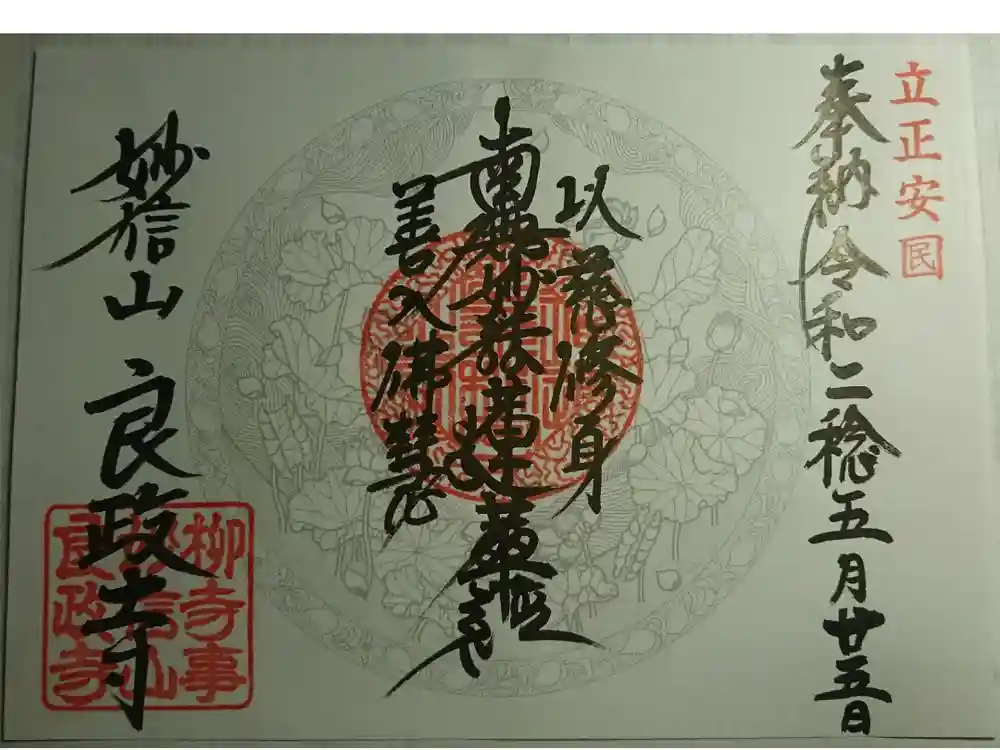 立正安国
奉納令和二稔五月廿五日
以慈修身
南無妙法蓮華経
善入佛慧
妙信山良政寺
柳寺事
妙信山
良政寺